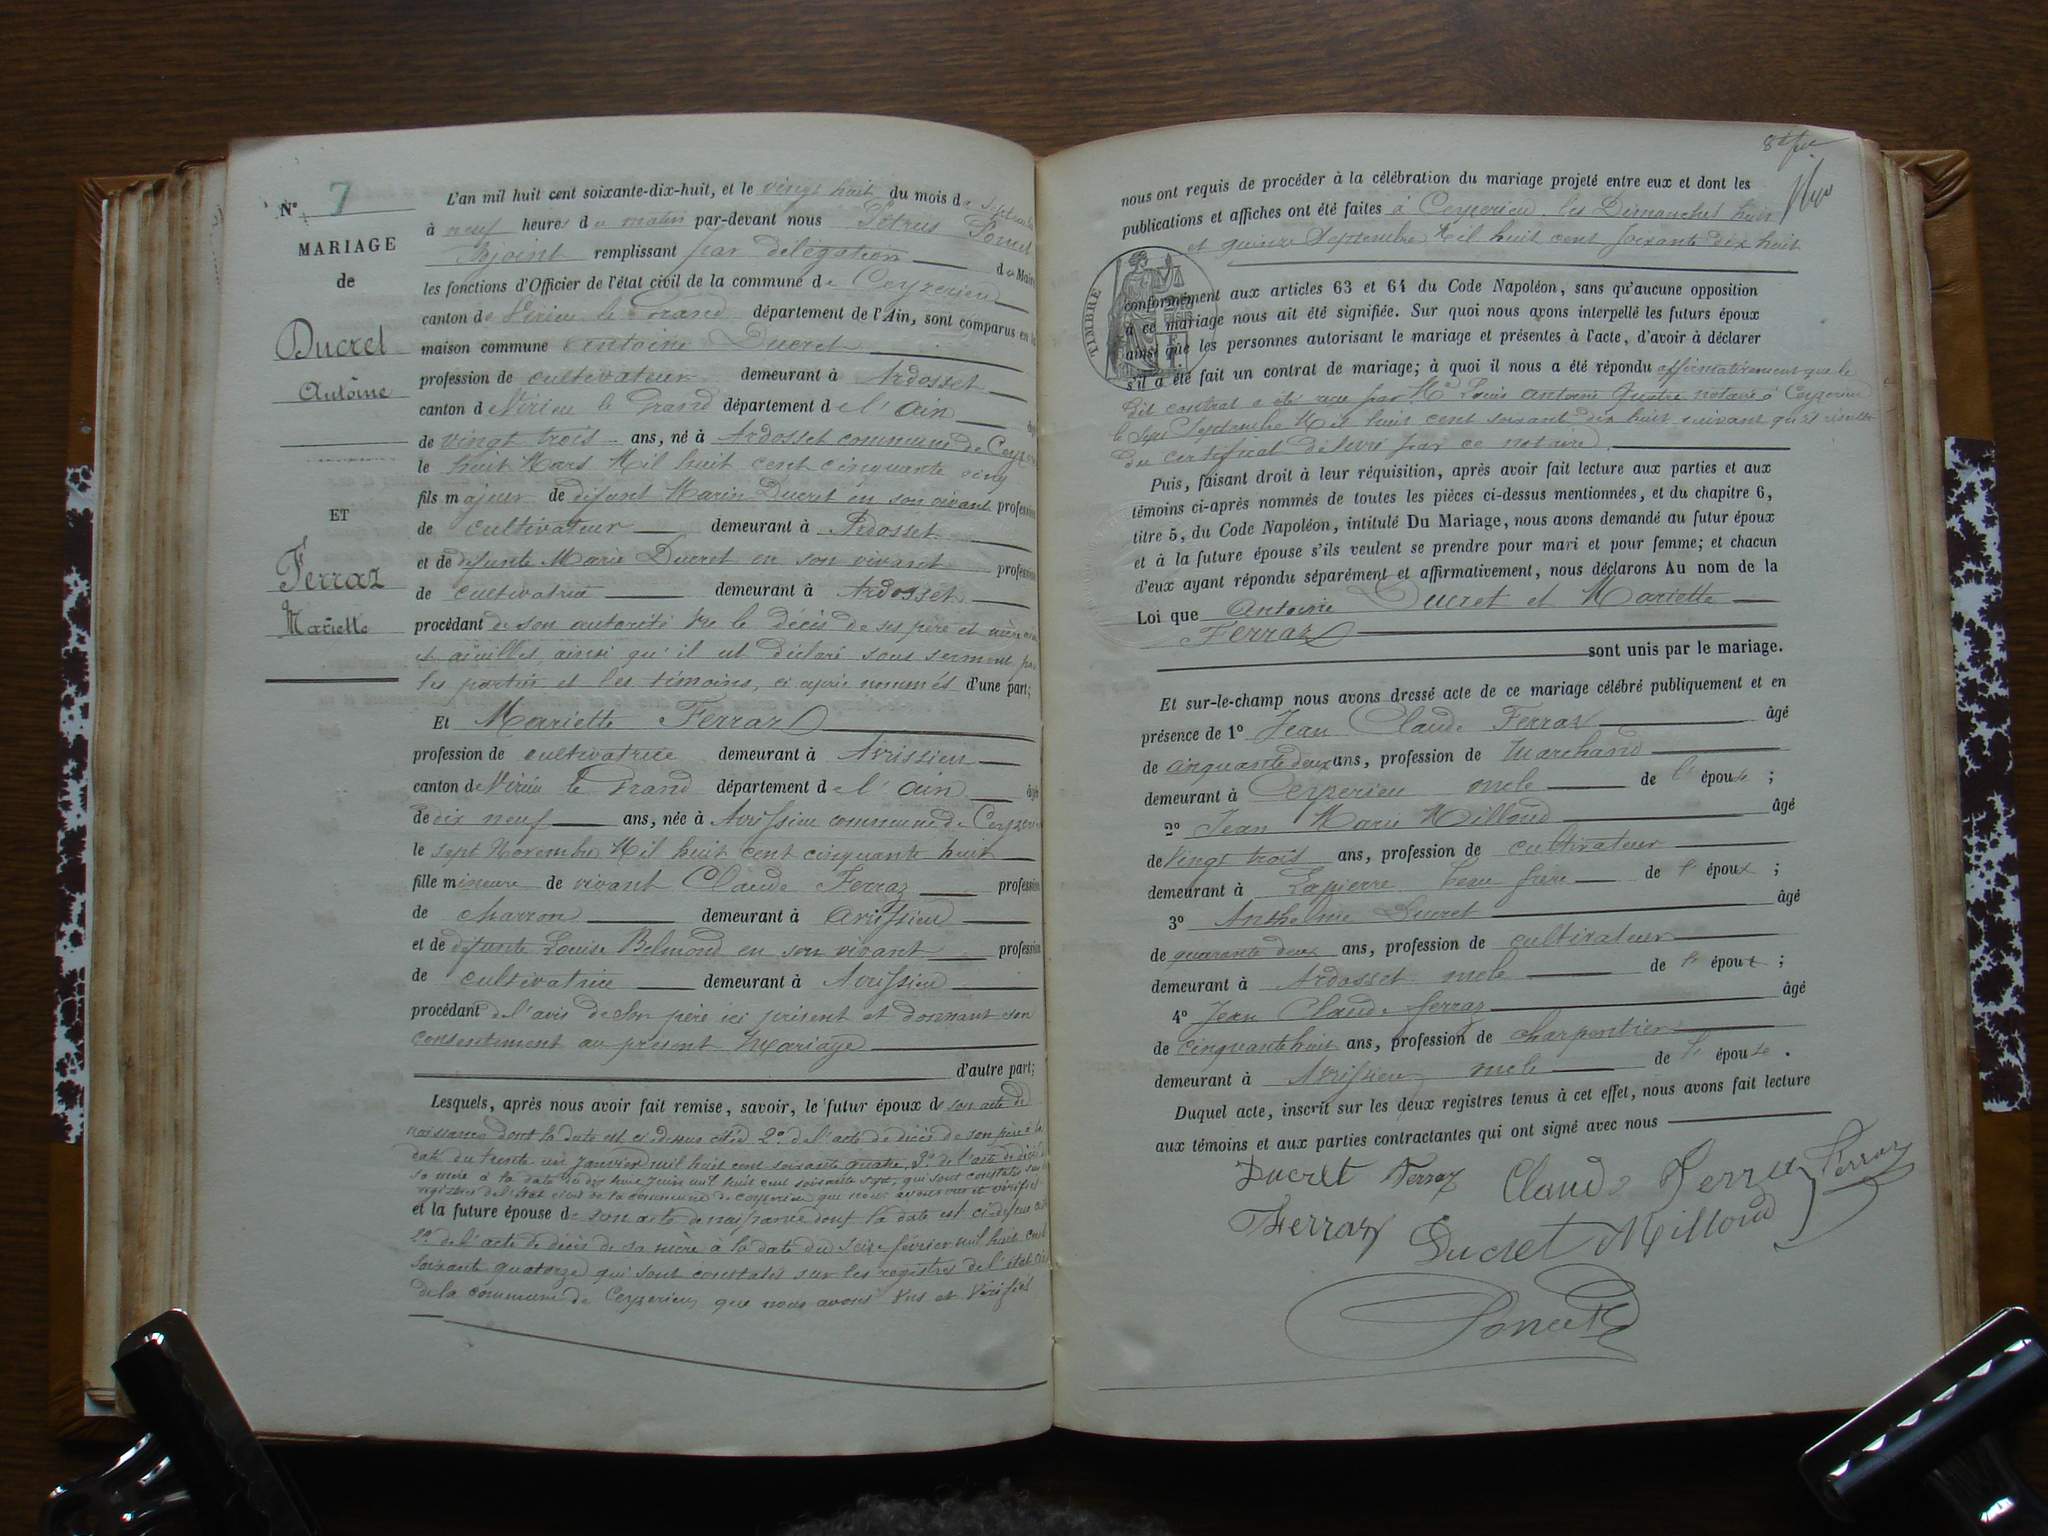 N° 7
MARIAGE
de
Ducret
Antoine
ET
Ferraz
Mariette
L'an mil huit cent soixante-dix-huit, et le vingt huit du mois de Septembre
à neuf heures du matin par-devant nous Pétrus Poncet
Adjoint remplissant par délégation du Maire
les fonctions d'Officier de l'état civil de la commune de Ceyzerieu
canton de Virieu le Grand département de l'Ain, sont comparus en la
maison commune Antoine Ducret
profession de cultivateur demeurant à Ardosset
canton de Virieu le Grand département de l'Ain
de vingt trois ans, né à Ardosset commune de Ceyzerieu
le huit Mars Mil huit cent cinquante cinq
fils majeur de défunt Marin Ducret en son vivant profession
de cultivateur demeurant à Ardosset
et de défunte Marie Ducret en son vivant profession
de cultivatrice demeurant à Ardosset
procédant de son autorité vu le décès de ses père et mère
et aieulles, ainsi qu'il est déclaré sous serment par
les parties et les témoins, ci après nommés d'une part;
Et Mariette Ferraz
profession de cultivatrice demeurant à Avrissieu
canton de Virieu le Grand département de l'Ain âgée
de dix neuf ans, née à Avrissieu commune de Ceyzerieu
le sept Novembre Mil huit cent cinquante huit
fille mineure de vivant Claude Ferraz profession
de charron demeurant à Avrissieu
et de défunte Louise Belmond en son vivant profession
de cultivatrice demeurant à Avrissieu
procédant de l'avis de son père ici présent et donnant son
consentement au présent Mariage
d'autre part;
Lesquels, après nous avoir fait remise, savoir, le futur époux de son acte de
naissance dont la date est ci dessus citée 2° de l'acte de décès de son père à la
date du trente un janvier mil huit cent soixante quatre, 3° de l'acte de décès de
sa mère à la date du dix huit Juin mil huit cent soixante sept, qui sont constatés sur les
registres de l'état civil de la commune de Ceyzerieu que nous avons vus et vérifiés
et la future épouse de son acte de naissance dont la date est ci dessus citée
2° de l'acte de décès de sa mère à la date du seize février mil huit cent
soixante quatorze qui sont constatés sur les registres de l'état civil
de la commune de Ceyzerieu que nous avons vus et vérifiés
nous ont requis de procéder à la célébration du mariage projeté entre eux et dont les
publications et affiches ont été faites à Ceyzerieu, les Dimanches huit
et quinze Septembre Mil huit cent soixante dix huit
TIMBRE
conformément aux articles 63 et 64 du Code Napoléon, sans qu'aucune opposition
à ce mariage nous ait été signifiée. Sur quoi nous avons interpellé les futurs époux
ainsi que les personnes autorisant le mariage et présentes à l'acte, d'avoir à déclarer
s'il a été fait un contrat de mariage; à quoi il nous a été répondu affirmativement que le
dit contrat a été reçu par Me Louis Antoine notaire à Ceyzerieu
le Sept Septembre Mil huit cent soixante dix huit suivant qu'il résulte
du certificat délivré par ce notaire
Puis, faisant droit à leur réquisition, après avoir fait lecture aux parties et aux
témoins ci-après nommés de toutes les pièces ci-dessus mentionnées, et du chapitre 6,
titre 5, du Code Napoléon, intitulé Du Mariage, nous avons demandé au futur époux
et à la future épouse s'ils veulent se prendre pour mari et pour femme; et chacun
d'eux ayant répondu séparément et affirmativement, nous déclarons Au nom de la
Loi que Antoine Ducret et Mariette
Ferraz
sont unis par le mariage.
Et sur-le-champ nous avons dressé acte de ce mariage célébré publiquement et en
présence de 1° Jean Claude Ferraz âgé
de cinquante deux ans, profession de Marchand
demeurant à Ceyzerieu oncle de l'épouse ;
2° Jean Marie Milloud âgé
de vingt trois ans, profession de cultivateur
demeurant à Lapierre beau frère de l'époux ;
3° Anthelme Ducret âgé
de quarante deux ans, profession de cultivateur
demeurant à Ardosset oncle de l'époux ;
4° Jean Claude Ferraz âgé
de cinquante huit ans, profession de charpentier
demeurant à Avrissieu oncle de l'épouse .
Duquel acte, inscrit sur les deux registres tenus à cet effet, nous avons fait lecture
aux témoins et aux parties contractantes qui ont signé avec nous
Ducret Ferraz Claude Ferraz Ferraz
Ferraz Ducret Milloud
Poncet